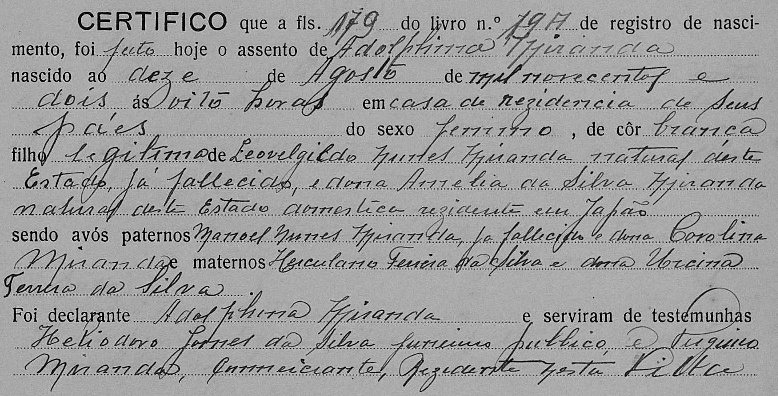 CERTIFICO que a fls. 179 do livro n.º 19A de registro de nasci-
mento, foi feito hoje o assento de Adolphina Miranda
nascido ao deze de Agosto de mil novecentos e
dois ás oito horas em casa de rezidencia de seus
páes do sexo femino, de côr branca
filho legitimo de Leovelgildo Nunes Miranda natural deste
Estado, já fallecido, e dona Amelia da Silva Miranda
natural deste Estado domestica rezidente em Japão
sendo avós paternos Manoel Nunes Miranda, já fallecido e dona Carolina
Miranda e maternos Herculano Ferreira da Silva e dona
da Silva
Foi declarante Adolphina Miranda e serviram de testemunhas
Heliodoro Gomes da Silva publico, e
Miranda, Commerciante, Rezidente nesta Villa